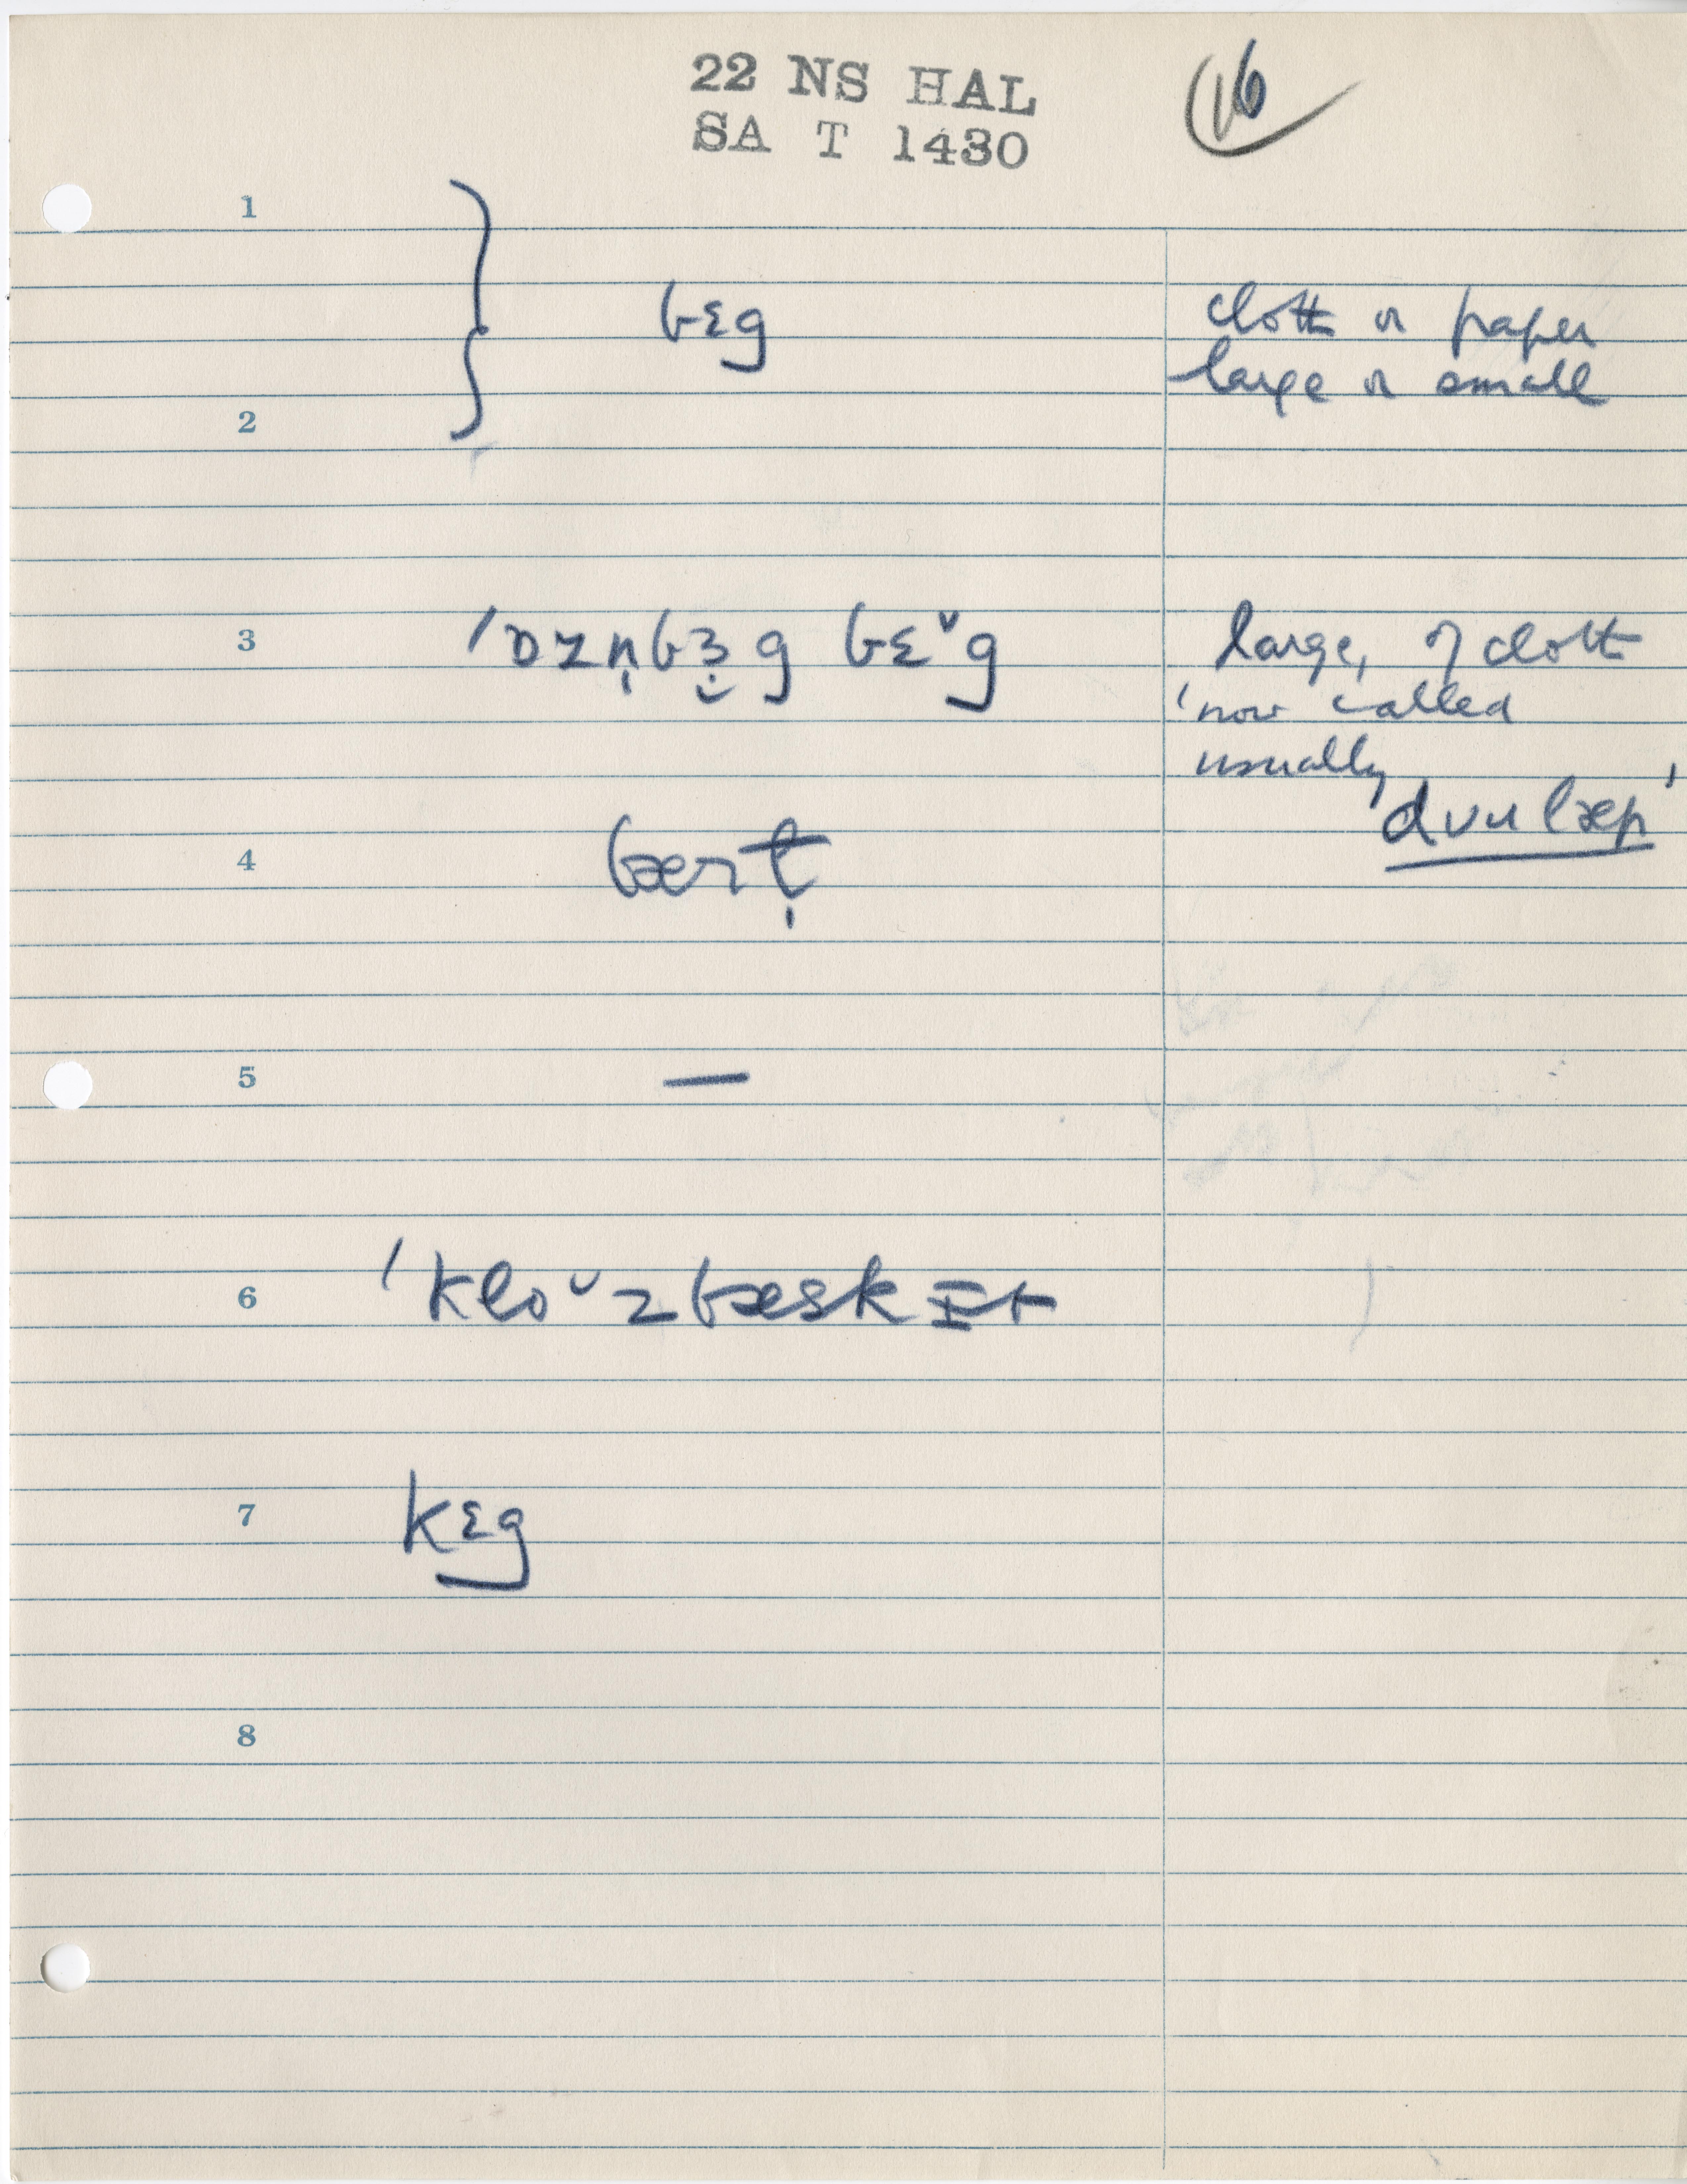 22 NS HAL
SA T 1430
16
1
bɛg
cloth or paper
large or small
2
3
ˈɒzn̩bɜ̣g bɛ˅g
large, of cloth
'now called
usually
dʌnləp'
4
bært̩
5
—
6
ˈklo ᴗ zbæskɪt
7
kɛg
8